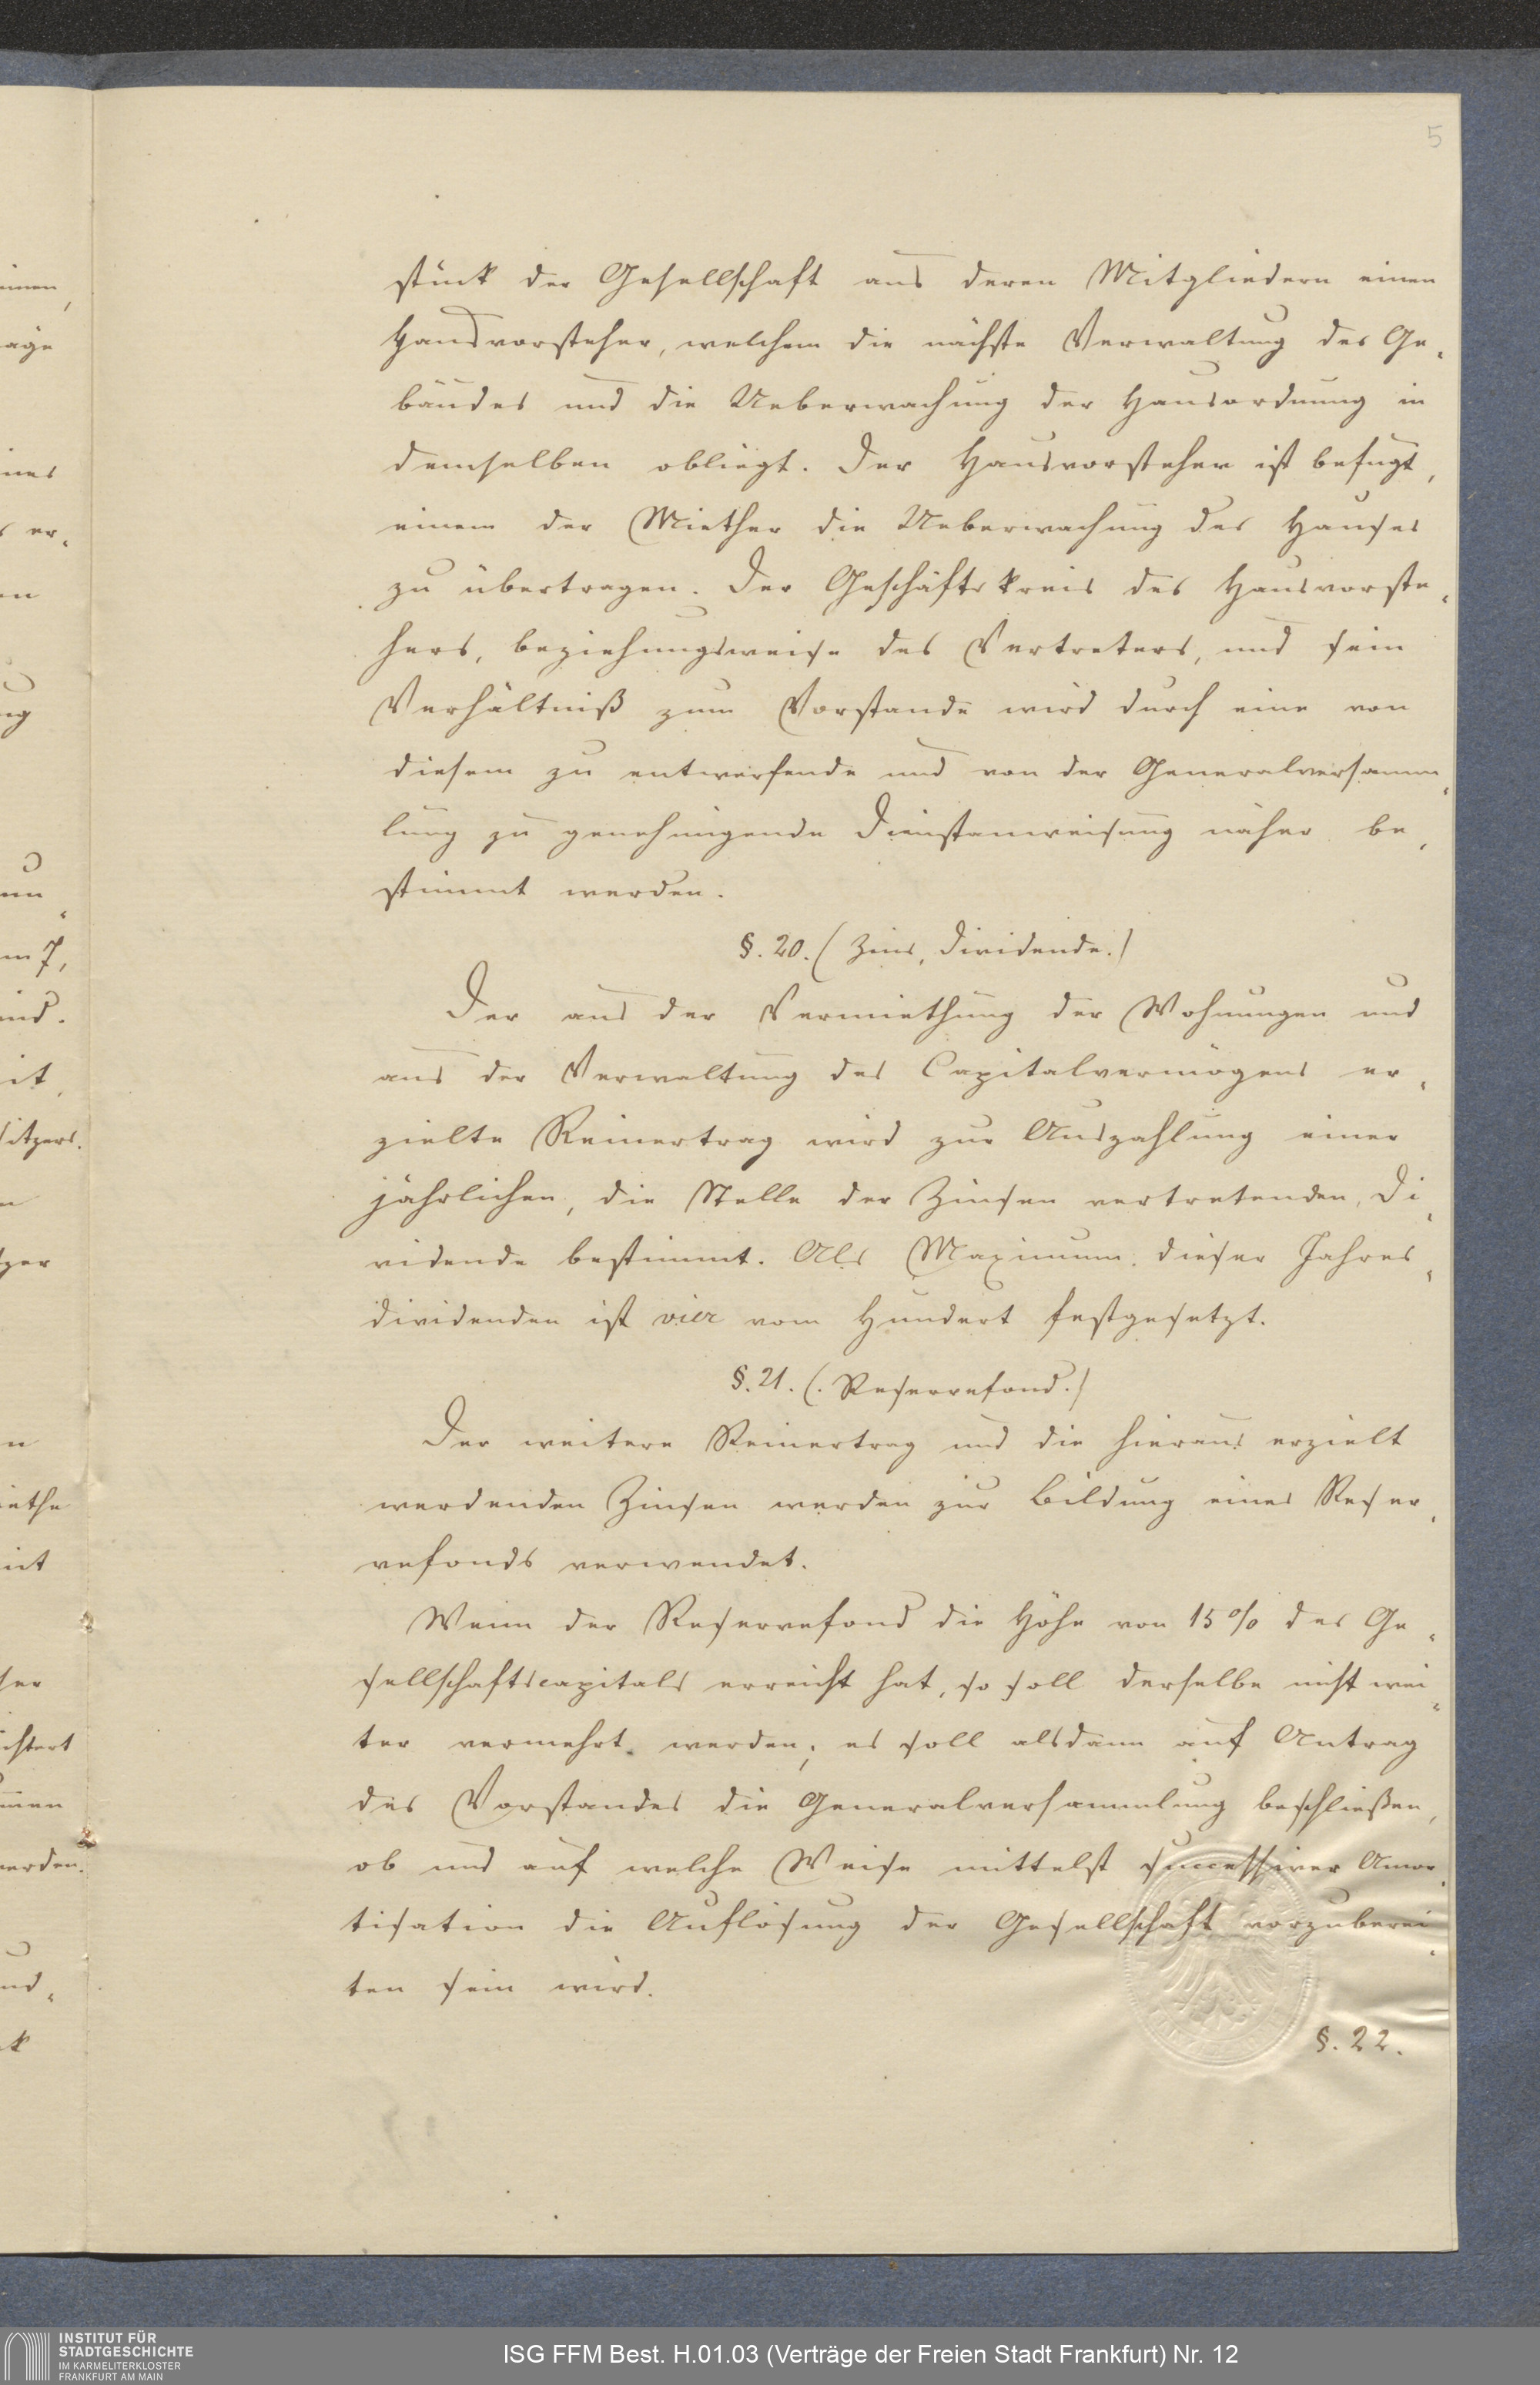 5
stück der Gesellschaft aus deren Mitgliedern einen
Hausvorsteher, welchem die nächste Verwaltung des Ge-
bäudes und die Ueberwachung der Hausordnung in
demselben obliegt. Der Hausvorsteher ist befugt,
einem der Miether die Ueberwachung des Hauses
zu übertragen. Der Geschäftskreis des Hausvorste-
hers, beziehungsweise des Vertreters, und sein
Verhältniß zum Vorstande wird durch eine von
diesem zu entwerfende und von der Generalversamm-
lung zu genehmigende Dienstanweisung näher be-
stimmt werden.
§. 20. (Zins, Dividende.)
Der aus der Vermiethung der Wohnungen und
aus der Verwaltung des Capitalvermögens er-
zielte Reinertrag wird zur Auszahlung einer
jährlichen, die Stelle der Zinsen vertretenden, Di-
vidende bestimmt. Als Maximum dieser Jahres-
dividenden ist vier vom Hundert festgesetzt.
§. 21. (Reservefond.)
Der weitere Reinertrag und die hieraus erzielt
werdenden Zinsen werden zur Bildung eines Reser-
vefonds verwendet.
Wenn der Reservefond die Höhe von 15% des Ge-
sellschaftscapitals erreicht hat, so soll derselbe nicht wei-
ter vermehrt werden; es soll alsdann auf Antrag
des Vorstandes die Generalversammlung beschließen,
ob und auf welche Weise mittelst successiver Amor-
tisation die Auflösung der Gesellschaft vorzuberei-
ten sein wird.
§. 22.
INSTITUT FÜR
STADTGESCHICHTE
IM KARMELITERKLOSTER
FRANKFURT AM MAIN
ISG FFM Best. H.01.03 (Verträge der Freien Stadt Frankfurt) Nr. 12